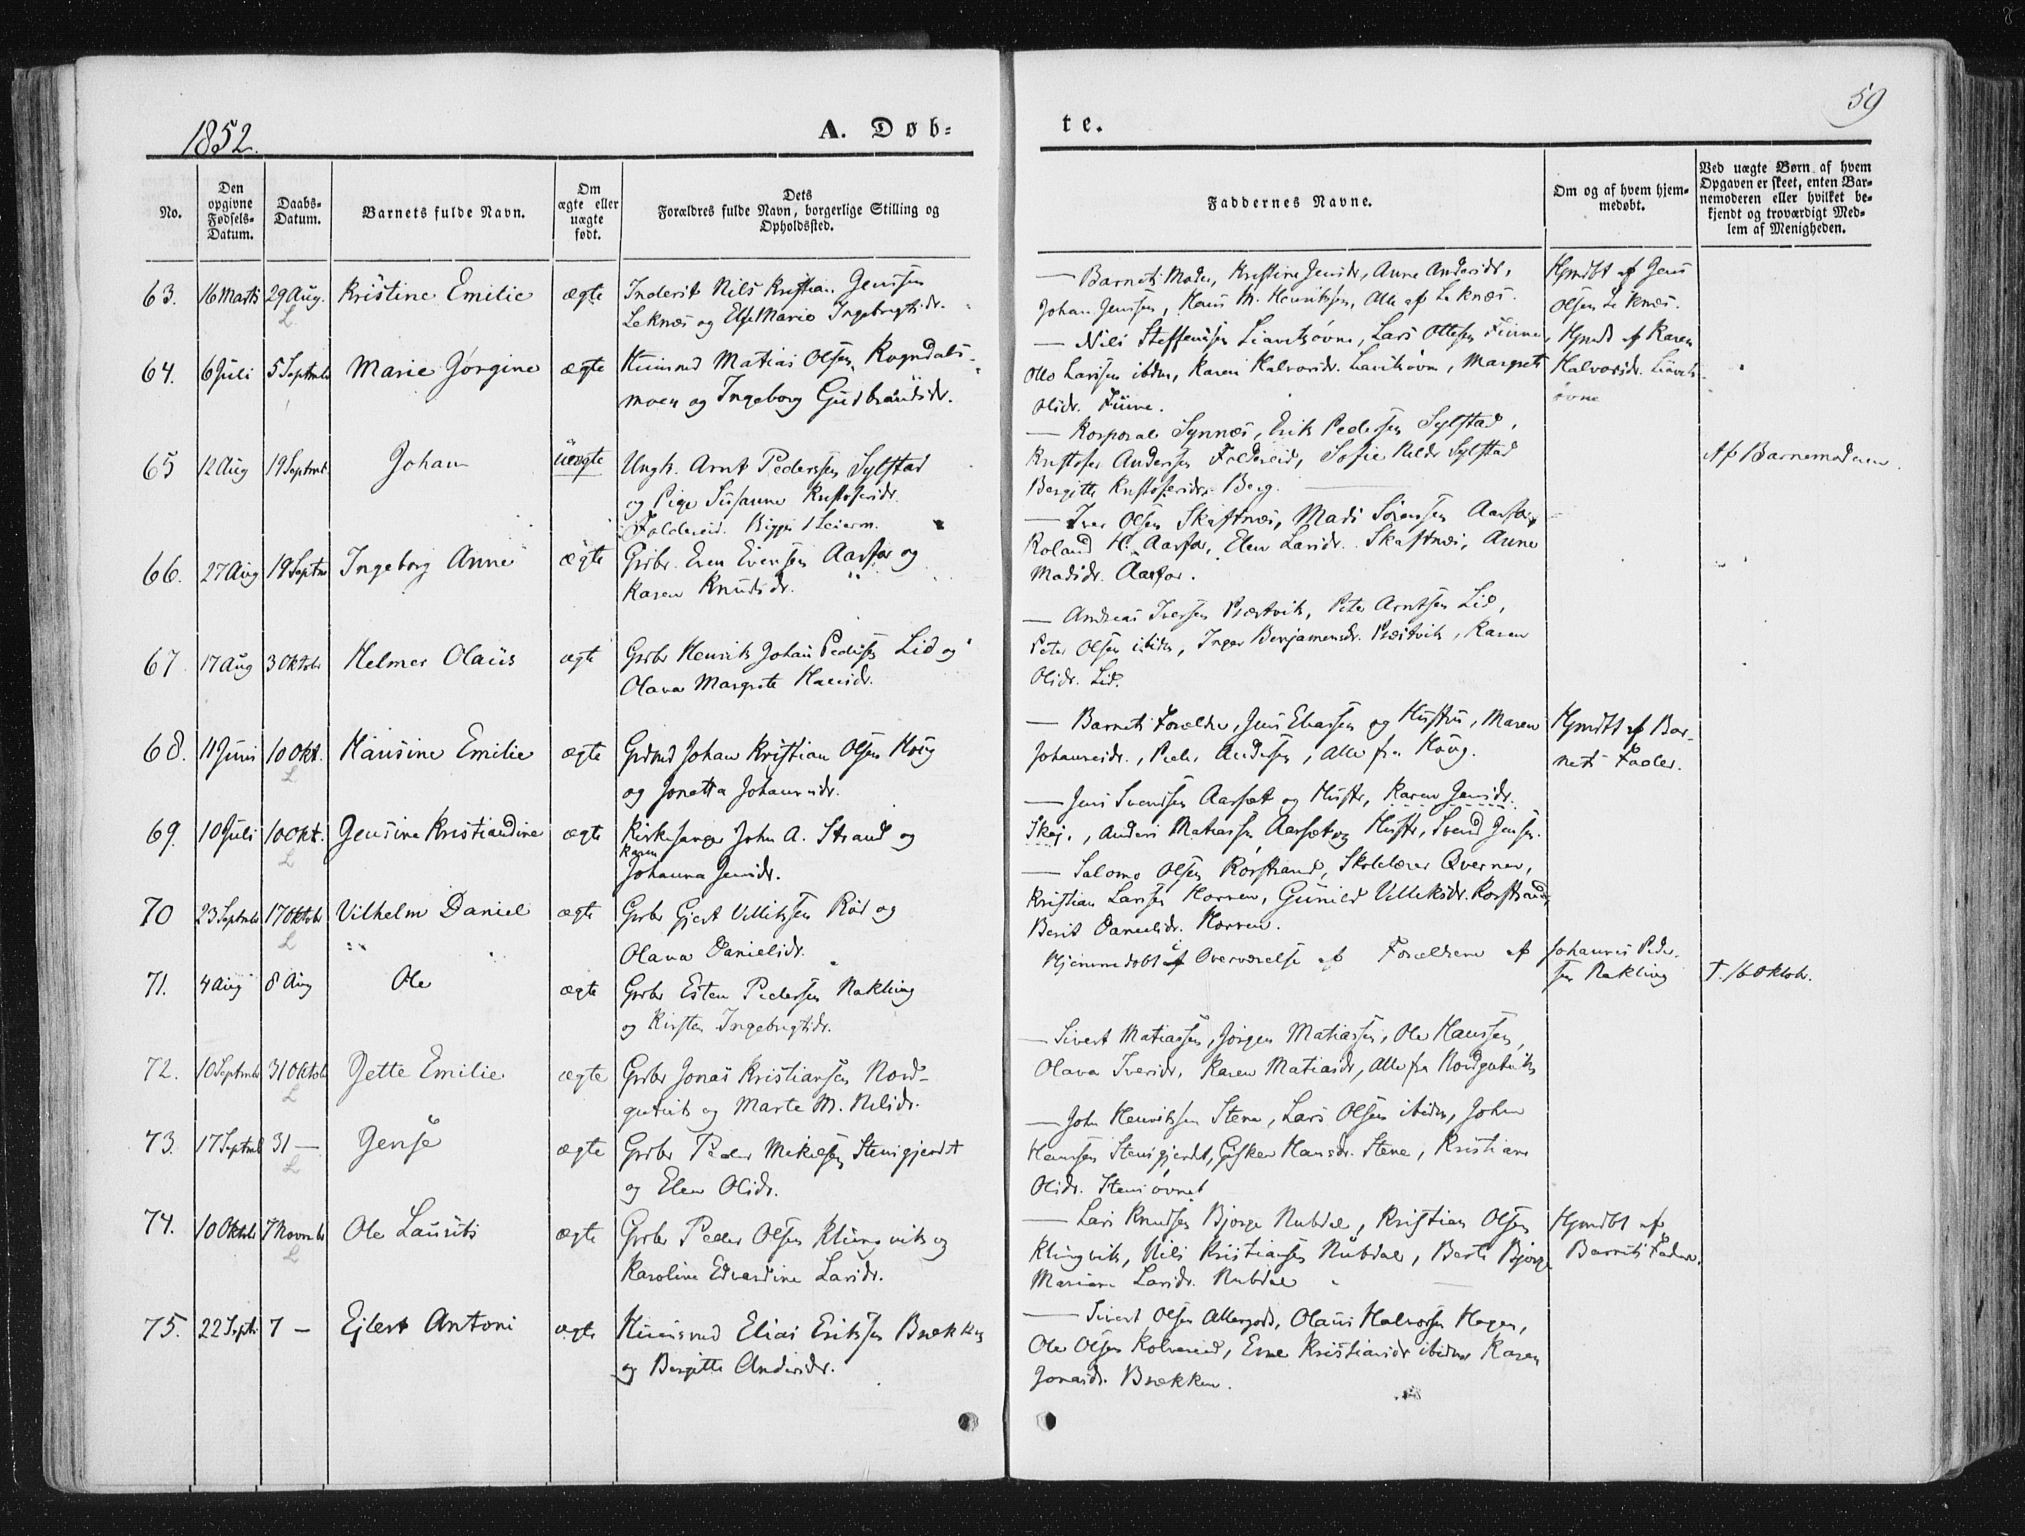 59
1852.
A. Døb-
te.
No.
Den opgivne Fødsels-Datum.
Daabs-Datum.
Barnets fulde Navn.
Om ægte eller uægte født.
Dets Forældres fulde Navn, borgerlige Stilling og Opholdssted.
Faddernes Navne.
Om og af hvem hjemmedøbt.
Ved uægte Børn af hvem Opgaven er skeet, enten Barnemoderen eller hvilket bekjendt og troværdigt Medlem af Menigheden.
63. 16 Marts 29 Aug. Kristine Emilie ægte Inderst Nils Kristian Jenssen
Leknæs og Else Marie Ingebrigtsdr.
— Barnets Moder, Kristine Jensdr, Anne Andersdr,
Johan Jenssen, Hans M. Henriksen, Alle af Leknæs.
Hjmdbt af Jens
Olsen Leknæs.
64. 6 Juli 5 Septmbr Marie Jørgine ægte Huusmd Matias Olsen Kongndals-
moen og Ingeborg Gudbrandsdr.
— Nils Steffensen Liavitsøvne, Lars Ottesen Fiinne,
Otto Larssen ibidm, Karen Halvorsdr. Liavitsøvn, Margrete
Olsdr. Fiinne.
Hjmdt af Karen
Halvorsdr. Liavits-
øvne
65 12 Aug 19 Septmbr Johan uægte Ungk. Arnt Pedersen Sylstad
og Pige Susanne Kristofersdr
Foldereid. Bigges 1 Leierm.
— Korporal Synnæs, Erik Pedersen Sylstad,
Kristofer Andersen Foldereid, Sofie Nilsdr Sylstad
Bergitte Kristofersdr. Berg.
Af Barnemoderen.
66. 27 Aug 19 Septmr Ingeborg Anne ægte Grbr. Even Evensen Aarfor og
Karen Knudsdr.
— Iver Olsen Skaftnæs, Mads Sørensen Aarfor,
Roland H. Aarfor, Elen Larsdr. Skaftnæs, Anne
Madsdr. Aarfor.
67. 17 Aug 3 Oktobr Helmer Olaus ægte Grbr Henrik Johan Pedersen Lid og
Olava Margrete Hansdr.
— Andreas Iversen Præstvik, Peter Arntsen Lid,
Peter Olsen ibidm, Inger Benjamensdr. Præstvik, Karen
Olsdr. Lid.
68. 11 Juni 10 Okt. Hansine Emilie ægte Grdmd Johan Kristian Olsen Houg
og Jonetta Johannesdr.
— Barnets Forældre, Jens Eliassen og Hustru, Maren
Johannesdr., Peder Andersen, Alle fra Houg.
Hjmdbt af Bar-
nets Fader.
69. 10 Juli 10 Okt. Jensine Kristiandine ægte Kirkesanger John A. Strand og
Karen
Johanna Jensdr.
— Jens Svendsen Aarsæt og Hustr, Karen Jensdr.
Skej., Anders Matiassen Aarsæt og Hustr, Svend Jensen.
70 23 Septmbr 17 Oktobr Vilhelm Daniel ægte Grbr Gjert Villiksen Rød og
Olava Danielsdr.
— Salomo Olsen Rørstrand, Skolelærer Qvernen,
Kristian Larssen Horven, Gunild Villiksdr. Rorstrand,
Berit Danielsdr. Horven.
71. 4 Aug 8 Aug Ole ægte Grbr Esten Pedersen Nakling
og Kirsten Ingebrigtsdr.
Hjemmedøbt i Overværelse af Forældrene af Johannes Peder-
sen Nakling
T. 16 Oktobr.
72. 10 Septmbr 31 Oktobr Jette Emilie ægte Grbr Jonas Kristiansen Nord-
gutvik og Marte M. Nilsdr.
— Sivert Matiassen, Jørgen Matiassen, Ole Hanssen,
Olava Iversdr, Karen Matiasdr, Alle fra Nordgutvik
73. 17 Septmbr 31 — Jense ægte Grbr Peder Mikelsen Stensgjerdet
og Elen Olsdr.
— John Henriksen Stene, Lars Olsen ibidm, Johan
Hanssen Stensgjerdet, Gisken Hansdr. Stene, Kristiane
Olsdr. Stensøvnet
74. 10 Oktobr 7 Novmbr Ole Laurits ægte Grbr Peder Olsen Klingvik og
Karoline Edvardine Larsdr.
— Lars Knudsen Bjørge Nubdal, Kristian Olsen
Klingvik, Nils Kristiansen Nubdal, Berte Bjørge
Mariane Larsdr. Nubdal
Hjmdbt af
Barnets Fader.
75. 22 Septr 7 — Ejlert Antoni ægte Huusmd Elias Eriksen Brækken
og Bergitte Andersdr.
— Sivert Olsen Allergodt, Olaus Halvorsen Hagen,
Ole Olsen Kolvereid, Erne Kristiansdr ibidem Karen
Jonasdr. Brækken.